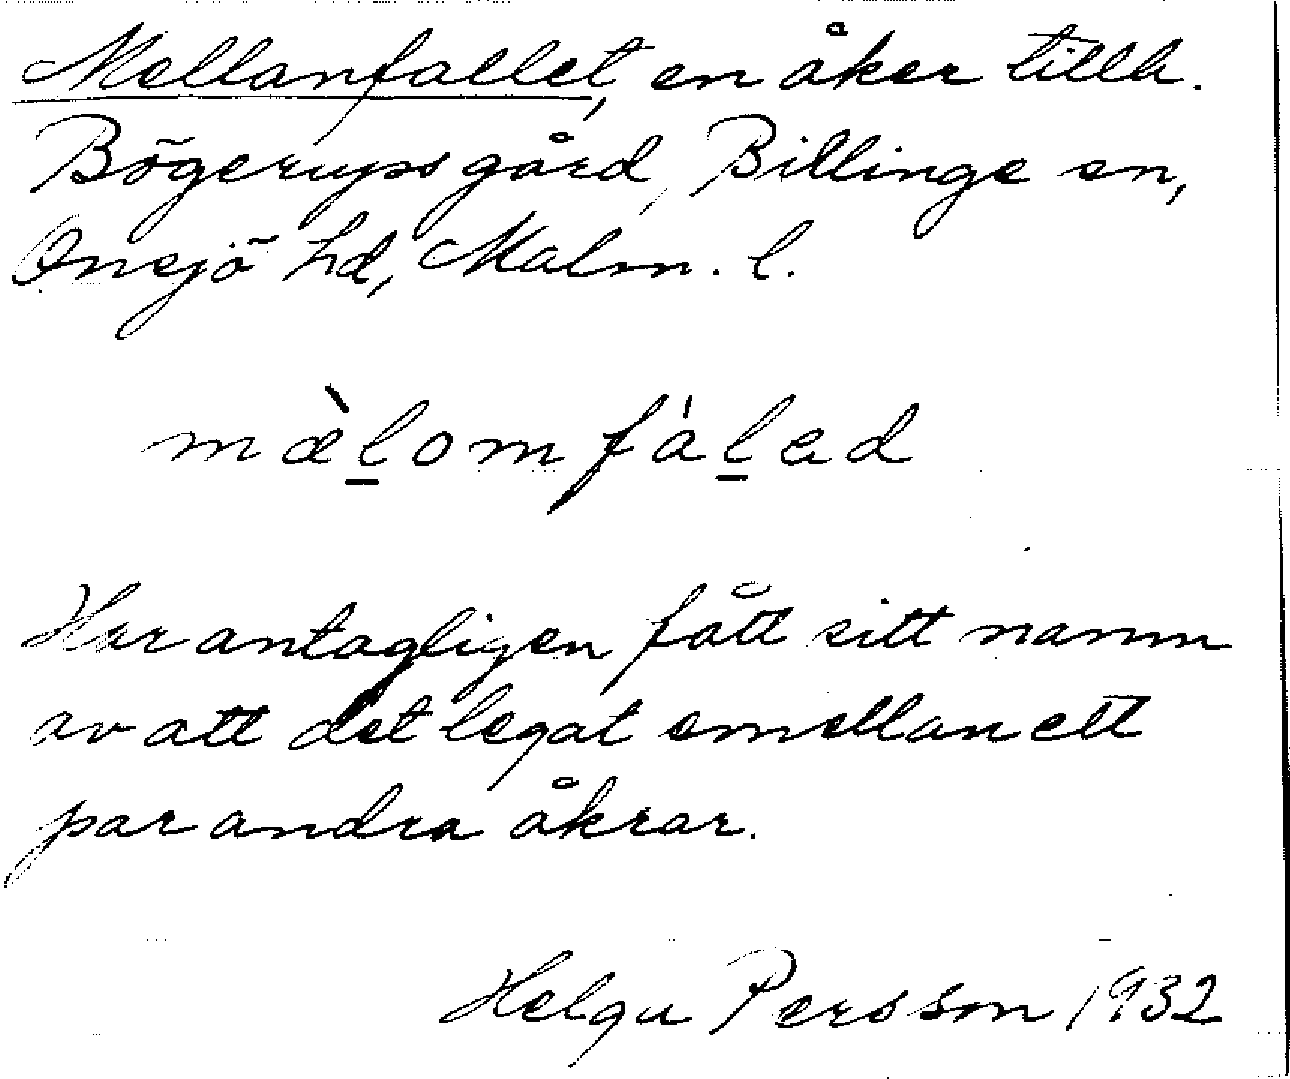 Mellanfallet, en åker tillh.
Bögerups gård, Billinge sn,
Onsjö hd, Malm. l.
mæ̀l̲om fál̲ad
Har antagligen fått sitt namn
av att det legat emellan ett
par andra åkrar.
Helgu Persson 1932